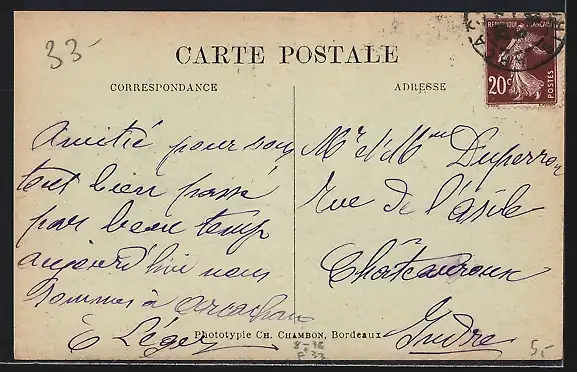 33-
CARTE POSTALE
CORRESPONDANCE
ADRESSE
REPUBLIQUE FRANÇAISE
20c
POSTES
Amitié pour vous
tout bien passé
par beau temp
aujourd'hui nous
sommes à arcachon
E Léger
Mr et Mme Duperron
rue de l'asile
Châteauroux
Indre
Phototypie CH. CHAMBON, Bordeaux
5,-